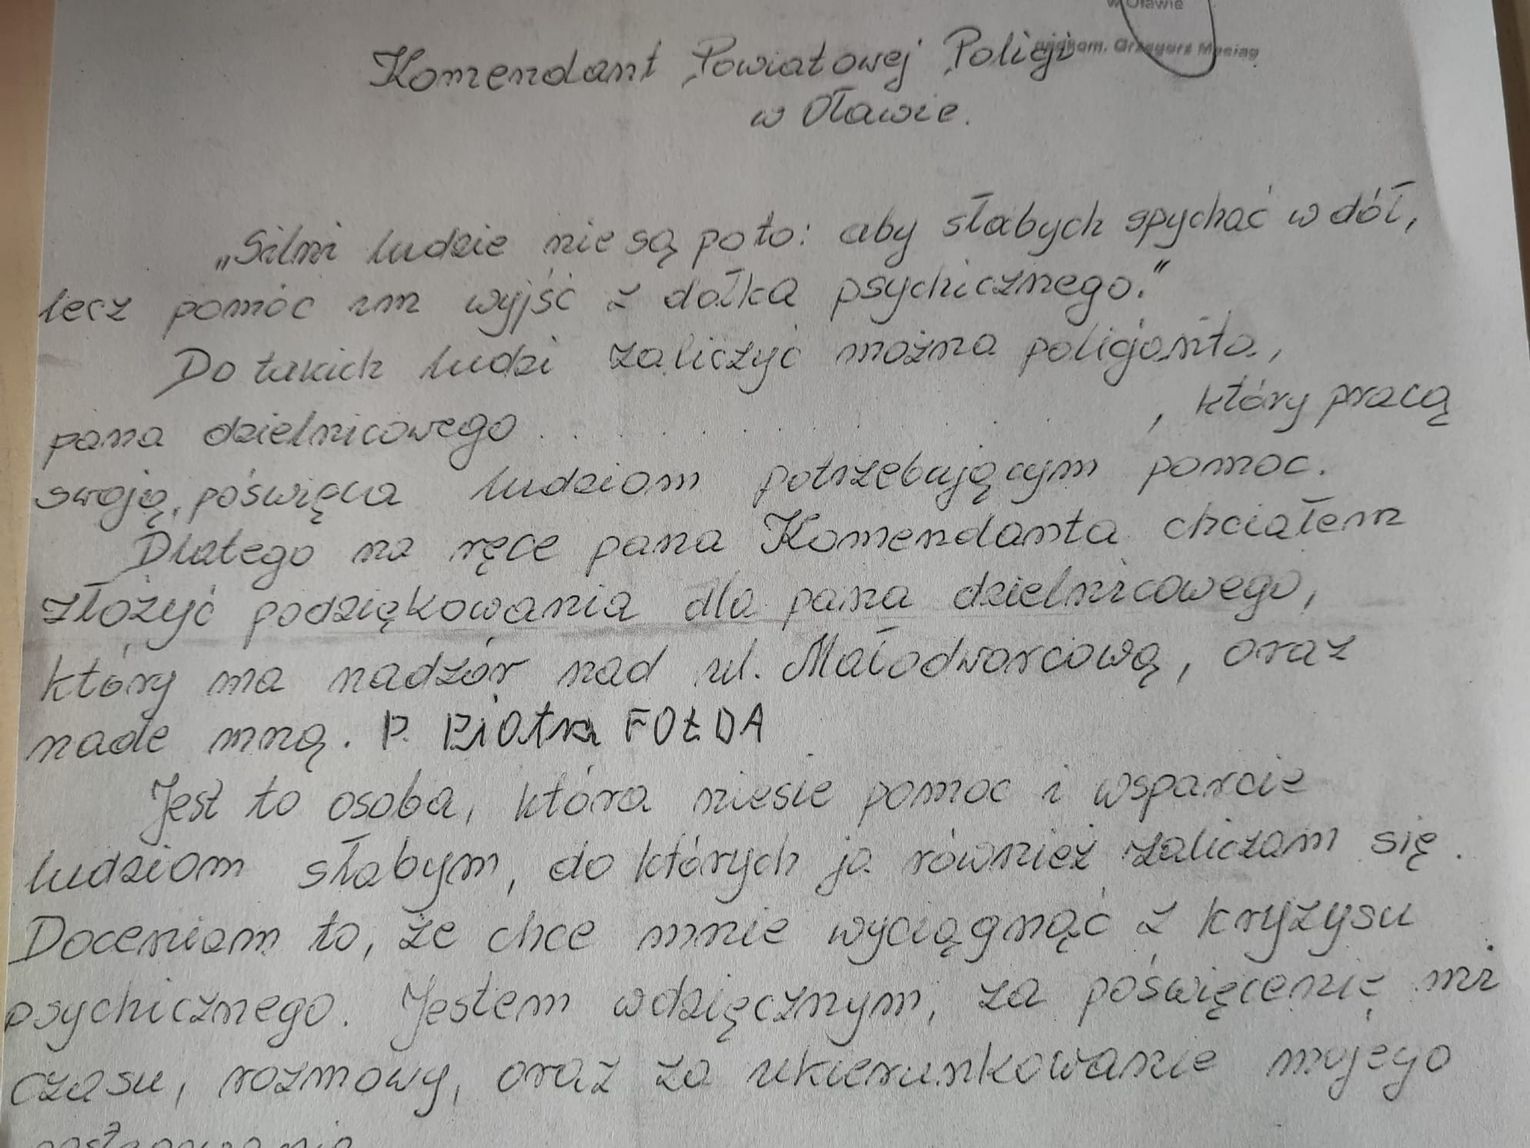 w Oławie
nadkom. Grzegorz Maciąg
Komendant Powiatowej Policji
w Oławie.
„Silni ludzie nie są po to: aby słabych spychać w dół,
lecz pomóc im wyjść z dołka psychicznego.”
Do takich ludzi zaliczyć można policjanta,
pana dzielnicowego . . . . . . . . . , który pracą
swoją, poświęca ludziom potrzebującym pomoc.
Dlatego na ręce pana Komendanta chciałem
złożyć podziękowania dla pana dzielnicowego,
który ma nadzór nad ul. Małodworcową, oraz
nade mną. P. Piotra FOŁDA
Jest to osoba, która niesie pomoc i wsparcie
ludziom słabym, do których ja również zaliczam się.
Doceniam to, że chce mnie wyciągnąć z kryzysu
psychicznego. Jestem wdzięcznym, za poświęcenię mi
czasu, rozmowy, oraz za ukierunkowanie mojego